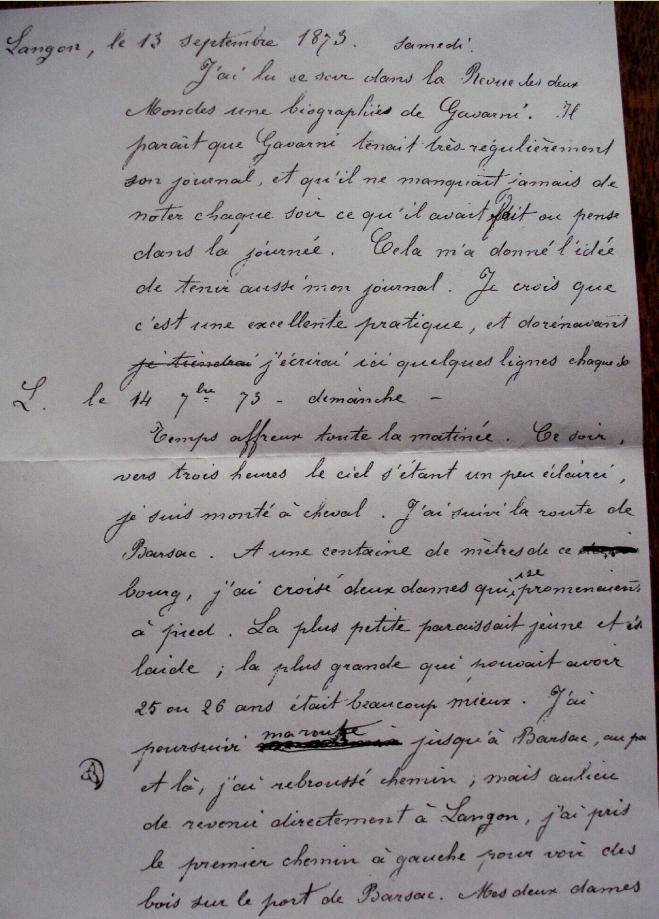 Langon, le 13 septembre 1873. samedi.
J'ai lu ce soir dans la Revue des deux
Mondes une biographies de Gavarni. Il
parait que Gavarni tenait très régulièrement
son journal, et qu'il ne manquait jamais de
noter chaque soir ce qu'il avait fait ou pensé
dans la journée. Cela m'a donné l'idée
de tenir aussi mon journal. Je crois que
c'est une excellente pratique, et dorénavant
je tiendrai j'écrirai ici quelques lignes chaque so
L. le 14 7bre 73 - dimanche -
Temps affreux toute la matinée. Ce soir,
vers trois heures le ciel s'étant un peu éclairci,
je suis monté à cheval. J'ai suivi la route de
Barsac. A une centaine de mètres de ce
bourg, j'ai croisé deux dames qui se promenaient
à pied. La plus petite paraissait jeune et
laide ; la plus grande qui pouvait avoir
25 ou 26 ans était beaucoup mieux. J'ai
poursuivi ma route jusqu'à Barsac, au pa
et là, j'ai rebroussé chemin ; mais au lieu
de revenir directement à Langon, j'ai pris
le premier chemin à gauche pour voir des
bois sur le port de Barsac. Mes deux dames